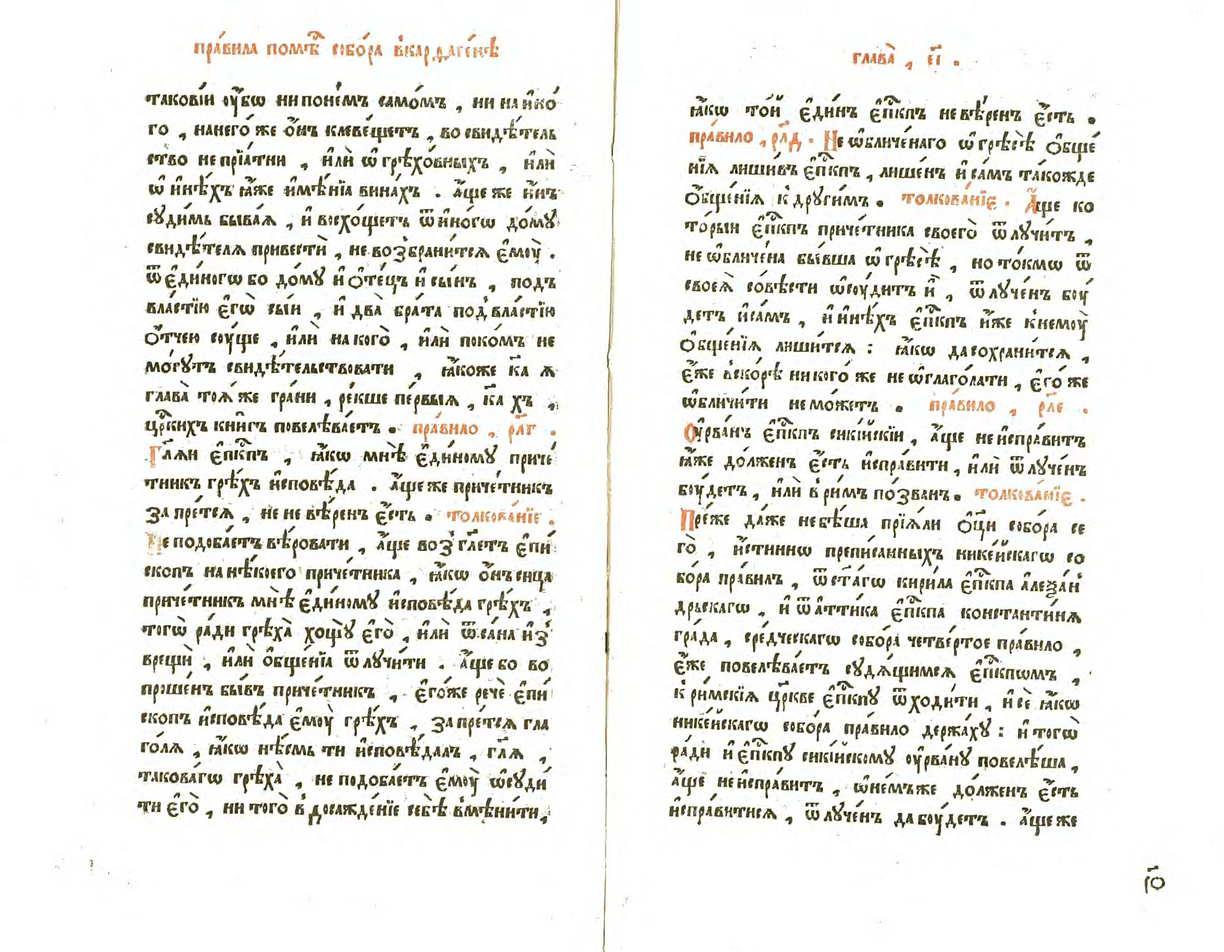 пра́вила помѣ́ст собо́ра в̾карѳаге́нѣ
таковíи ᲂу҆́бѡ ни по не́мъ само́мъ , ни на и҆́но
го , на него́ же ѻ҆́нъ клеве́щетъ , во свидѣ́тель
ство не прїа́тни , и҆лѝ ѡ҆ грѣхо́вныхъ , и҆лѝ
ѡ҆ и҆нѣ́хъ ꙗ҆́же и҆мѣ́нїѧ вина́хъ . а҆́ще же и҆́нъ
суди́мь быва́ѧ , и҆ восхо́щетъ ѿ и҆но́гѡ до́мꙋ
свидѣ́телѧ привестѝ , не возбрани́тсѧ є҆мꙋ̀ .
ѿ є҆ди́ногѡ бо до́мꙋ и҆ ѻ҆те́цъ и҆ сы́нъ , подъ
вла́стїю є҆гѡ̀ сы́и , и҆ два̀ бра́та под̾ вла́стїю
ѻ҆́тчею сꙋ́ще , и҆лѝ на кого̀ , и҆лѝ по ко́мъ не
мо́гꙋтъ свидѣ́тельствовати , ꙗ҆́коже к҃а ѧ
глава̀ тоѧ́ же гра́ни , ре́кше пе́рвыѧ , к҃а хъ ,
цр҃кихъ кни́гъ повелѣва́етъ . пра́вило , рл҃г .
Гл҃ѧи є҆пⷭ҇кпъ , ꙗ҆́кѡ мнѣ̀ є҆ди́номꙋ приче́
тникъ грѣ́хъ и҆сповѣ́да . а҆́ще же приче́тникъ
запре́тсѧ , не не вѣ́ренъ є҆́сть . толкова́нїе .
Не подоба́етъ вѣ́ровати , а҆́ще возгл҃етъ є҆пи́
скопъ на нѣ́коего приче́тника , ꙗ҆́кѡ ѻ҆́нъ сица
приче́тникъ мнѣ̀ є҆ди́номꙋ и҆сповѣ́да грѣ́хъ ,
тогѡ̀ ра́ди грѣха̀ хощꙋ̀ є҆го̀ , и҆лѝ ѿ са́на и҆з̾
врещѝ , и҆лѝ ѻ҆бще́нїѧ ѿлꙋчи́ти . а҆́ще бо во
проше́нъ бы́въ приче́тник , є҆го́же речѐ є҆пи́
скопъ и҆сповѣ́да є҆мꙋ̀ грѣ́хъ , запре́тсѧ гла
го́лѧ , ꙗ҆́кѡ нѣ́смь ти и҆сповѣ́далъ , гл҃ѧ ,
такова́гѡ грѣха̀ , не подоба́етъ є҆мꙋ̀ ѡ҆сꙋди́
ти є҆го̀ , ни того̀ в̾ досажде́нїе себѣ̀ в̾мѣни́ти ,
глава̀ , є҃і .
ꙗ҆́кѡ то́й є҆ди́нъ є҆пⷭ҇кпъ не вѣ́ренъ є҆́сть .
пра́вило , рл҃д . Не ѡ҆бличе́наго ѡ҆ грѣсѣ̀ ѻ҆бще́
нїѧ лиши́въ є҆пⷭ҇кпъ , лише́нъ и҆ са́мъ та́кожде
ѻ҆бще́нїѧ к̾ други́мъ . толкова́нїе . А҆́ще ко
то́рыи є҆пⷭ҇кпъ приче́тника своего̀ ѿлꙋчи́тъ ,
не ѡ҆бличе́на бы́вша ѡ҆ грѣсѣ̀ , но то́кмѡ ѿ
своеѧ̀ со́вѣсти ѡ҆сꙋ́дитъ и҆̀ , ѿлꙋче́нъ бꙋ́
детъ и҆ са́мъ , и҆ и҆нѣ́хъ є҆пⷭ҇кпъ и҆́же к̾ немꙋ̀
ѻ҆бще́нїѧ лиши́тсѧ : ꙗ҆́кѡ да сохрани́тсѧ ,
є҆́же в̾ско́рѣ никого́ же не ѡ҆глаго́лати , є҆го́ же
ѡ҆бличи́ти не мо́жетъ . пра́вило , рл҃е .
Оу҆рва́нъ є҆пⷭ҇кпъ сики́искїи , а҆́ще не и҆спра́витъ
ꙗ҆́же до́лженъ є҆́сть и҆спра́вити , и҆лѝ ѿлꙋче́нъ
бꙋ́детъ , и҆лѝ в̾ ри́мъ по́званъ . толкова́нїе .
Пре́же да́же не бѣ́ша прїѧ́ли ѻ҆ц҃и собо́ра се
го̀ , и҆́стиннѡ препи́санныхъ нике́йскагѡ со
бо́ра пра́вилъ , ѿ ст҃а́гѡ кири́ла є҆пⷭ҇кпа алеѯа́н
дрьскагѡ , и҆ ѿ а҆тти́ка є҆пⷭ҇кпа константи́нѧ
гра́да , сре́дческагѡ собо́ра четве́ртое пра́вило ,
є҆́же повелѣва́етъ сꙋдѧ́щимсѧ є҆пⷭ҇кпѡмъ ,
к̾ ри́мскїѧ цр҃кве є҆пⷭ҇кпꙋ ѿходи́ти , и҆ сѐ ꙗ҆́кѡ
нике́йскагѡ собо́ра пра́вило держа́хꙋ : и҆ тогѡ̀
ра́ди и҆ є҆пⷭ҇кпꙋ сики́искомꙋ ᲂу҆рва́нꙋ повелѣ́ша ,
а҆́ще не и҆спра́витъ , ѡ҆ не́мъже до́лженъ є҆́сть
и҆спра́витисѧ , ѿлꙋче́нъ да бꙋ́детъ . а҆́ще же